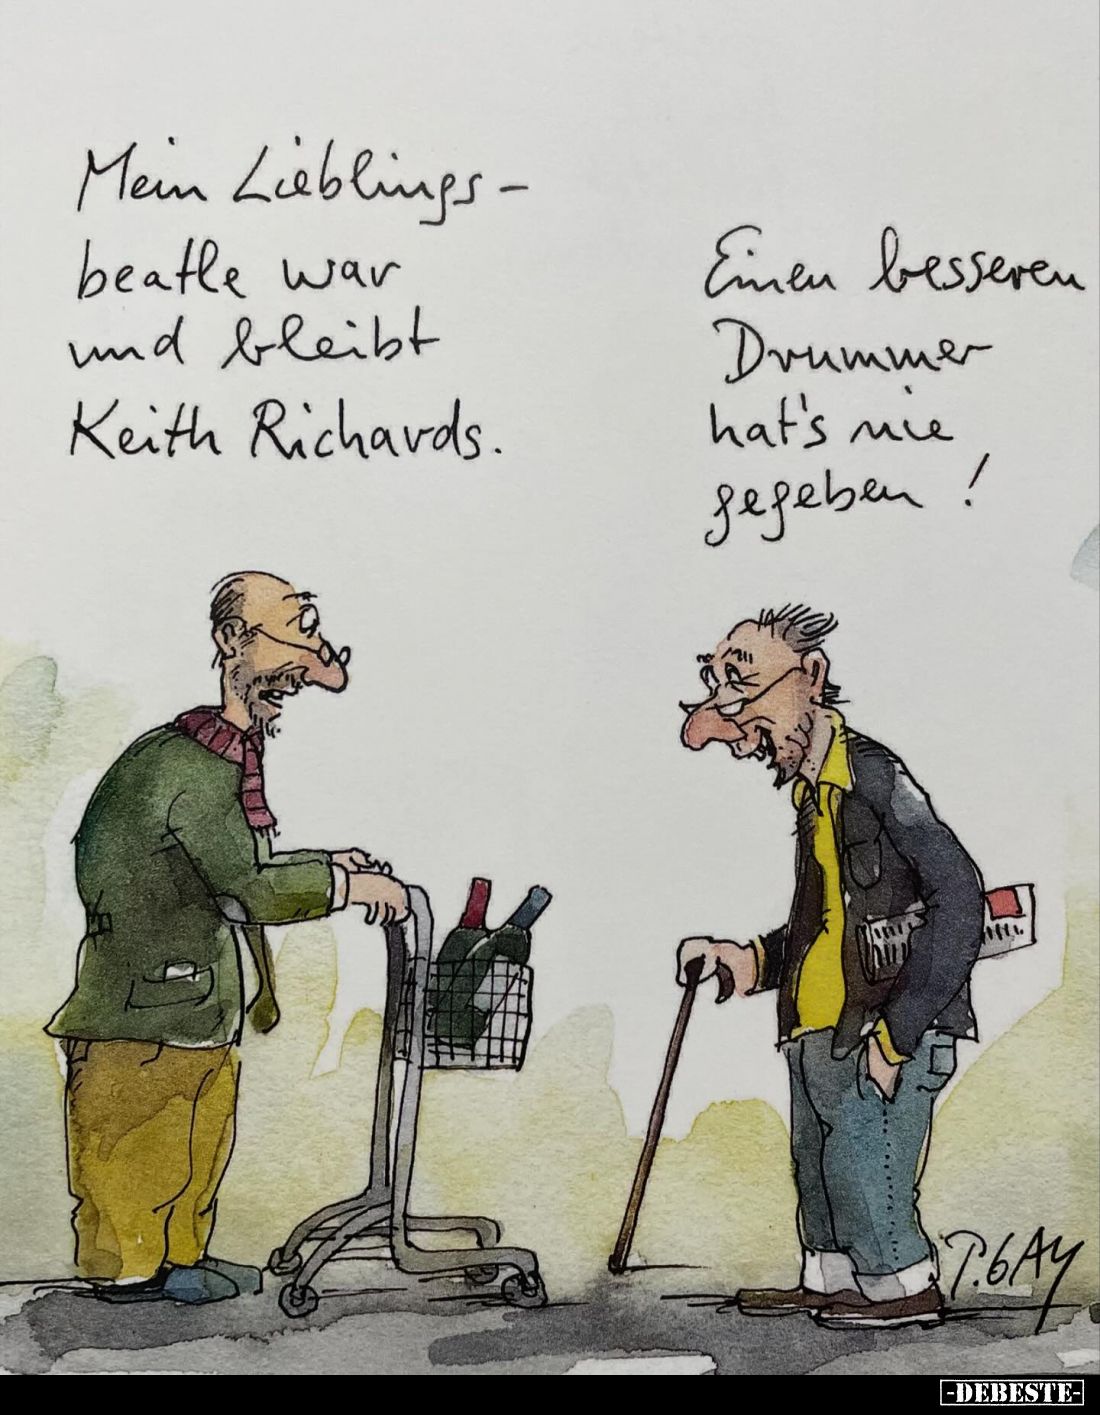 Mein Lieblings-
beatle war
und bleibt
Keith Richards.
Einen besseren
Drummer
hat's nie
gegeben!
P. GAY
-DEBESTE-